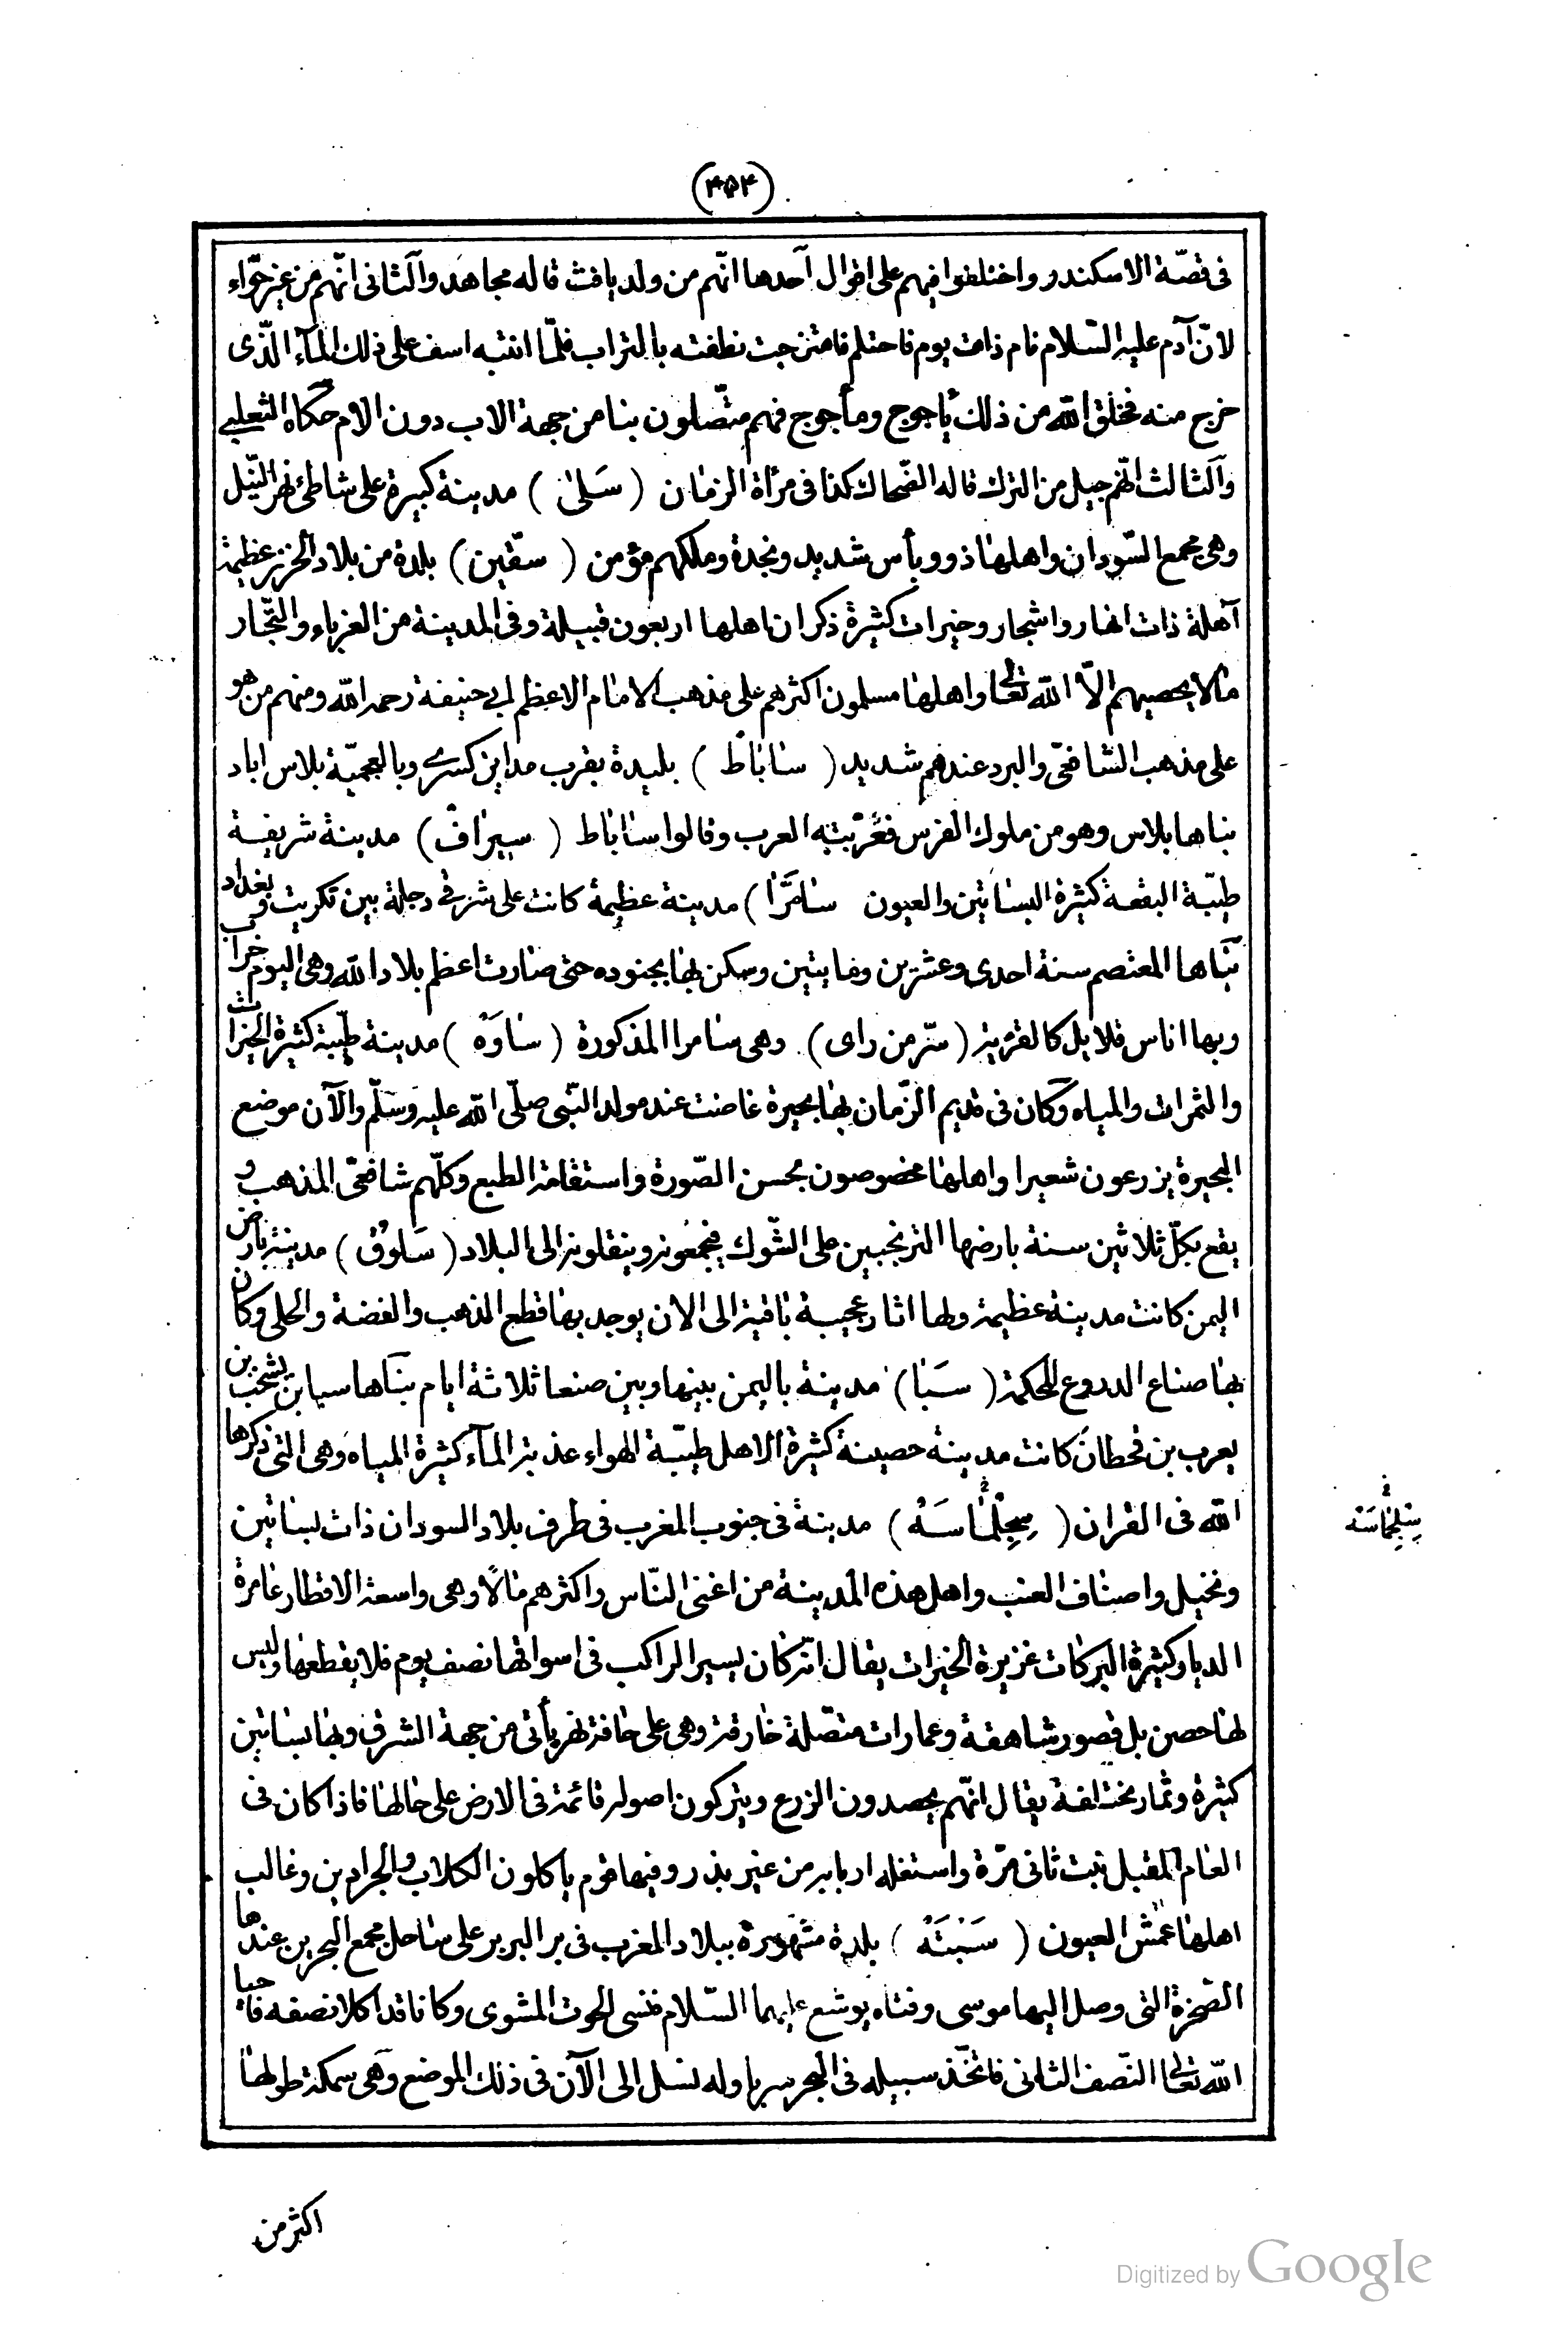 (۴۵۴)
فى قصّة الاسكندر واختلفوا فيهم على اقوال آحدها انّهم من ولد يافث قاله مجاهد وآلثانى انّهم من غير حوّاء
لانّ آدم عليه السّلام نام ذات يوم فاحتلم فامتزجت نطفته بالتراب فلمّا انتبه اسف على ذلك المآء الّذى
خرج منه فخلق الله من ذلك يأجوج ومأجوج فهم متّصلون بنا من جهة الاب دون الام حكاه الثعلبى
وآلثالث انّهم جيل من الترك قاله الضّحاك كذا فى مرأة الزمان ( سَلىٰ ) مدينة كبيرة على شاطئ نهر النّيل
وهى مجمع السّودان واهلها ذوو بأس شديد ونجدة وملكهم مؤمن ( سقّين ) بلدة من بلاد الخزر عظيمة
آهلة ذات انهار واشجار وخيرات كثيرة ذكر ان اهلها اربعون قبيلة وفى المدينة من الغرباء والتّجّار
ما لا يحصيهم الّا الله تعالى واهلها مسلمون اكثرهم على مذهب الامام الاعظم ابى حنيفة رحمه الله ومنهم من هو
على مذهب الشافعّى والبرد عندهم شديد ( ساباط ) بليدة بقرب مداين كسرى وبالعجميّة بلاس اباد
بناها بلاس وهو من ملوك الفرس فعَرّبته العرب وقالوا ساباط ( سيراف ) مدينة شريفة
طيّبة البقعة كثيرة البساتين والعيون سامَرّا ) مدينة عظيمة كانت على شرقى دجلة بين تكريت وبغداد
بَنّاها المعتصم سنة احدى وعشرين ومايتين وسكن بها بجنوده حتى صارت اعظم بلاد الله وهى اليوم خراب
وبها اناس قلايل كالقرية ( سّر من راى ) وهى سامرا المذكورة ( ساوَه ) مدينة طيّبة كثيرة الخيرات
والثمرات والمياه وكان فى قديم الزّمان بها بحيرة غاضت عند مولد النّبى صلّى الله عليه وسَلّم والآن موضع
البحيرة يزرعون شعيرا واهلها مخصوصون بحسن الصّورة واستقامة الطبع وكلّهم شافعّى المذهب و
يقع بكلّ ثلاثين سنة بارضها الترنجبين على الشّوك فيجمعونه وينقلونه الى البلاد ( سَلوق ) مدينة بارض
اليمن كانت مدينة عظيمة ولها اثار عجيبة باقية الى الان يوجد بها قطع الذهب والفضة والحلى وكان
بها صناع الدروع المحكمة ( سَبَا ) مدينة باليمن بينها وبين صنعا ثلاثة ايام بنّاها سبا بن يشجب بن
يعرب بن قحطان كانت مدينة حصينة كثيرة الاهل طيّبة الهواء عذبة المآء كثيرة المياه وهى التى ذكرها
الله فى القران ( سِجِلْمَاسَهْ ) مدينة فى جنوب المغرب فى طرف بلاد السودان ذات بساتين
سِنْلجِمَاسَه
ونخيل واصناف العنب واهل هذه المدينة من اغنى النّاس واكثرهم مالًا وهى واسعة الاقطار عامرة
الديار كثيرة البركات غزيرة الخيرات يقال انّه كان يسير الراكب فى اسواقها نصف يوم فلا يقطعها وليس
لها حصن بل قصور شاهقة وعمارات متصّلة خارقة وهى على حافة نهر يأتى من جهة الشرق وبها بساتين
كثيرة وثمار مختلفة يقال انّهم يحصدون الزرع ويتركون اصوله قائمة فى الارض على حالها فاذا كان فى
العام المقبل نبت ثانى مّرة واستغله اربابه من غير بذر وفيها قوم ياكلون الكلاب والجراذين وغالب
اهلها عمش العيون ( سَبْتَهْ ) بلدة مشهورة ببلاد المغرب فى بر البربر على ساحل مجمع البحرين عندها
الصّخرة التى وصل اليها موسى وفتاه يوشع عليهما السّلام فنسى الحوت المشوى وكانا قد اكلا نصفه فاحيا
الله تعالى النّصف الثانى فاتّخذ سبيله فى البحر سربا وله نسل الى الآن فى ذلك الموضع وهى سمكة طولها
اكثر من
Digitized by Google